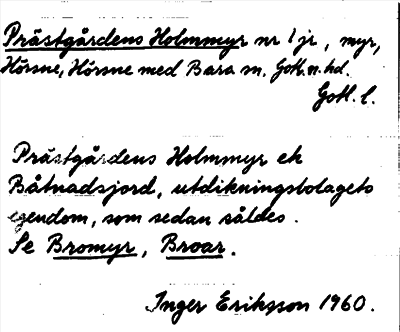 Prästgårdens Holmmyr nr 1 jr, myr,
Hörsne, Hörsne med Bara sn. Gotl. n. hd.
Gotl. l.
Prästgårdens Holmmyr ek
Båtnadsjord, utdikningsbolagets
egendom, som sedan såldes.
Se Bromyr, Broar.
Inger Eriksson 1960.